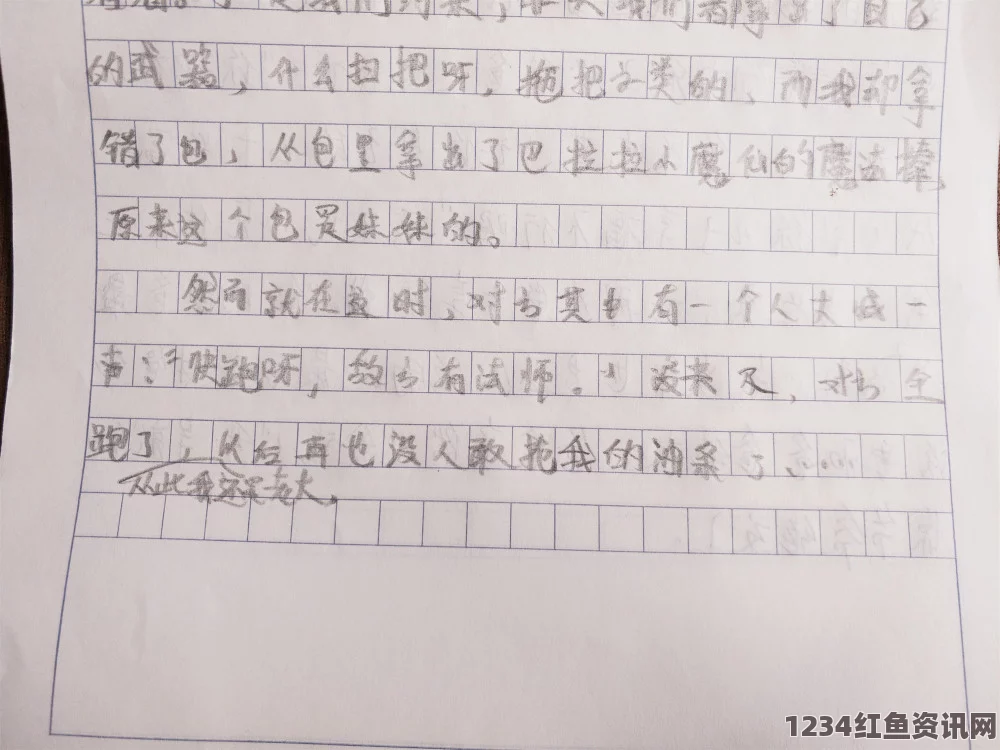 的武器，什么扫把呀，拖把之类的，而我却拿
错了包，从包里拿出了巴拉拉小魔仙的魔法棒，
原来这个包是妹妹的。
然而就在这时，对方其中有一个人大喊一
声："快跑呀，敌方有法师。
对方全
跑了，从后再也没人敢抢我的油条了……
从此我还是老大。
1234红鱼资讯网